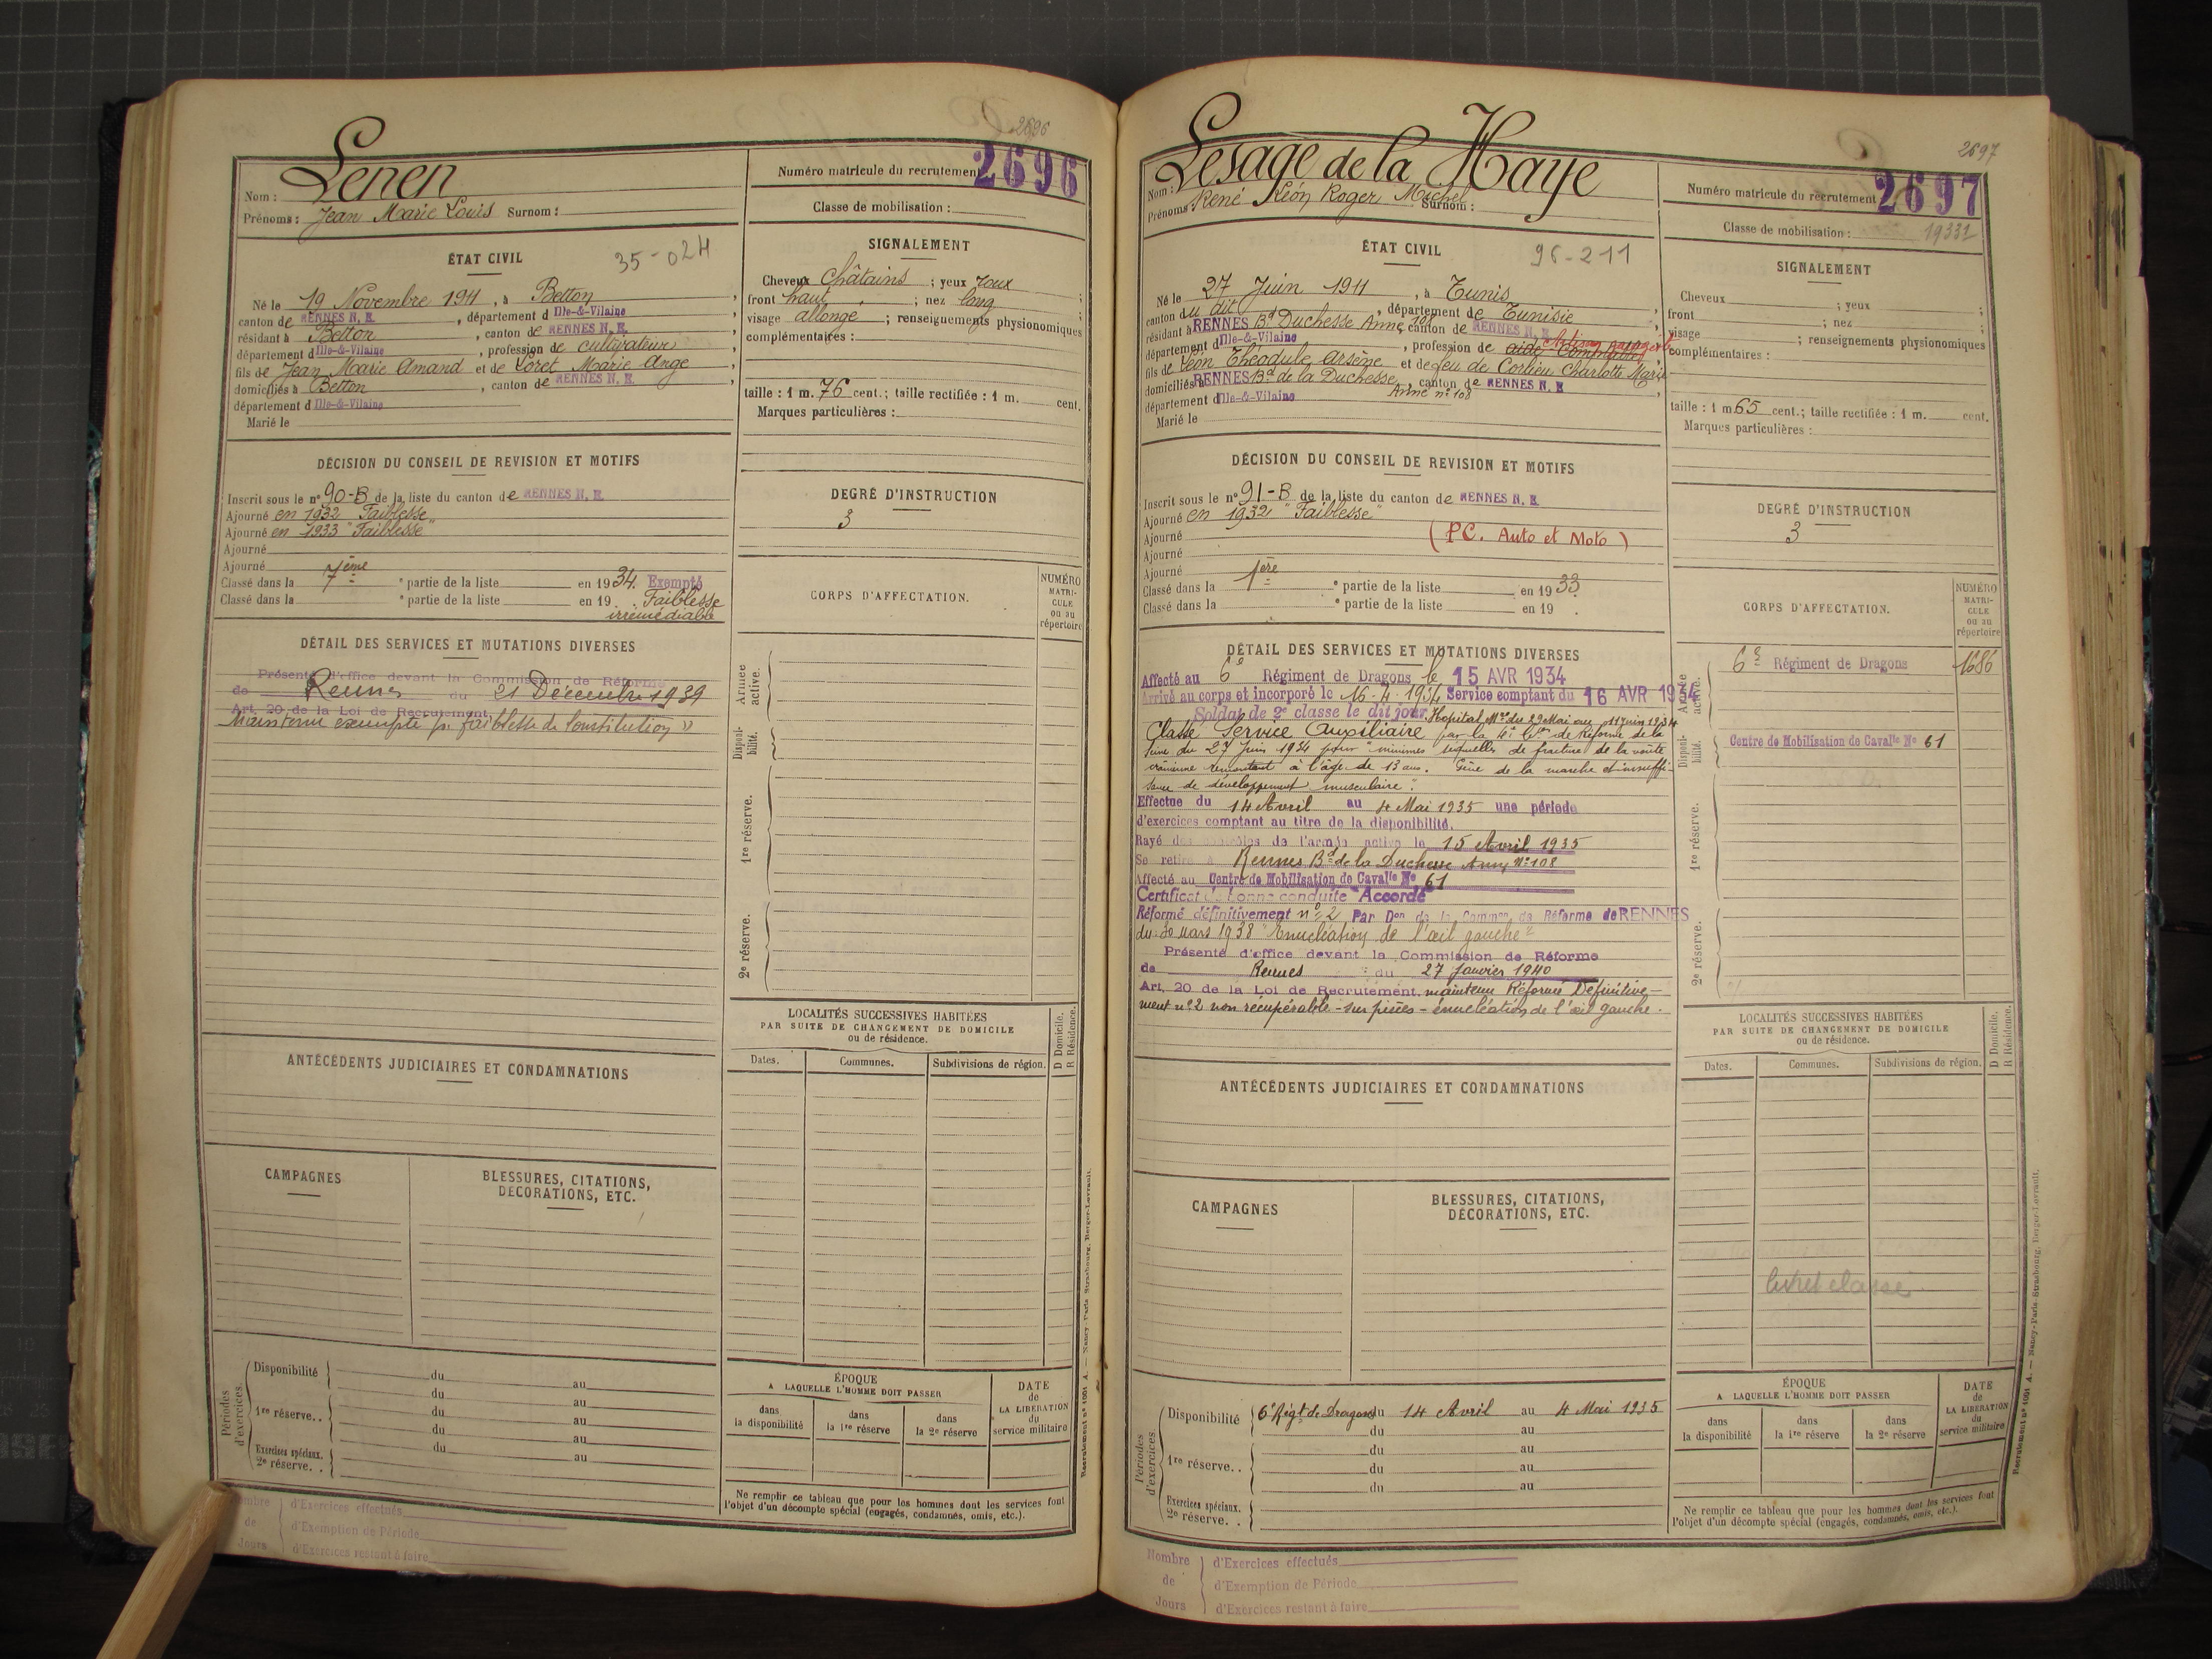 2696
Lenen
Nom :
Prénoms : Jean Marie Louis Surnom :
Numéro matricule du recrutement 2696
Classe de mobilisation :
ÉTAT CIVIL
35-024
Né le 19 Novembre 1911, à Betton,
canton de RENNES N. E., département d Ille-&-Vilaine
résidant à Betton, canton de RENNES N. E.,
département d Ille-&-Vilaine, profession de cultivateur
fils de Jean Marie Amand et de Loret Marie Ange
domiciliés à Betton, canton de RENNES N. E.,
département d Ille-&-Vilaine
Marié le
SIGNALEMENT
Cheveux Châtains ; yeux roux ;
front haut ; nez long ;
visage allongé ; renseignements physionomiques
complémentaires :
taille : 1 m. 76 cent.; taille rectifiée : 1 m. cent.
Marques particulières :
DÉCISION DU CONSEIL DE REVISION ET MOTIFS
Inscrit sous le n° 90-B de la liste du canton de RENNES N. E.
Ajourné en 1932 "Faiblesse"
Ajourné en 1933 "Faiblesse"
Ajourné
Ajourné
Classé dans la 7ème e partie de la liste en 1934. Exempté
Classé dans la e partie de la liste en 19 . Faiblesse
irrémédiable
DEGRÉ D'INSTRUCTION
3
CORPS D'AFFECTATION.
NUMÉRO
MATRI-
CULE
ou au
répertoire
DÉTAIL DES SERVICES ET MUTATIONS DIVERSES
Présenté d'office devant la Commission de Réforme
de Rennes du 21 Décembre 1939
Art. 20 de la Loi de Recrutement
Maintenu exempté pr faiblesse de constitution »
Armée
active.
Disponi-
bilité.
1re réserve.
2e réserve.
ANTÉCÉDENTS JUDICIAIRES ET CONDAMNATIONS
LOCALITÉS SUCCESSIVES HABITÉES
PAR SUITE DE CHANGEMENT DE DOMICILE
ou de résidence.
Dates. Communes. Subdivisions de région.
D Domicile.
R Résidence.
CAMPAGNES
BLESSURES, CITATIONS,
DÉCORATIONS, ETC.
Périodes
d'exercices.
Disponibilité du au
du au
1re réserve. . du au
du au
Exercices spéciaux.
2e réserve. . du au
ÉPOQUE
A LAQUELLE L'HOMME DOIT PASSER
dans
la disponibilité
dans
la 1re réserve
dans
la 2e réserve
DATE
de
LA LIBÉRATION
du
service militaire
Ne remplir ce tableau que pour les hommes dont les services font
l'objet d'un décompte spécial (engagés, condamnés, omis, etc.).
Nombre
de
Jours
d'Exercices effectués
d'Exemption de Période
d'Exercices restant à faire
Recrutement n° 1001 A. — Nancy-Paris-Strasbourg, Berger-Levrault.
2697
Lesage de la Haye
Nom :
Prénoms : René Léon Roger Michel
Surnom :
Numéro matricule du recrutement 2697
Classe de mobilisation :
ÉTAT CIVIL
96-211
Né le 27 Juin 1911, à Tunis,
canton du dit, département de Tunisie
résidant à RENNES Bd Duchesse Anne 108, canton de RENNES N. E.
département d Ille-&-Vilaine, profession de
fils de Léon Théodule Arsène et de feu de Corlieu Charlotte Marie
domiciliés à RENNES Bd de la Duchesse, canton de RENNES N. E.
Anne n° 108
département d Ille-&-Vilaine
Marié le
SIGNALEMENT
Cheveux ; yeux ;
front ; nez ;
visage ; renseignements physionomiques
complémentaires :
taille : 1 m 65 cent.; taille rectifiée : 1 m. cent.
Marques particulières :
DÉCISION DU CONSEIL DE REVISION ET MOTIFS
Inscrit sous le n° 91-B de la liste du canton de RENNES N. E.
Ajourné en 1932 "Faiblesse"
Ajourné (PC. Auto et Moto)
Ajourné
Ajourné
Classé dans la 1ère e partie de la liste en 1933
Classé dans la e partie de la liste en 19 .
DEGRÉ D'INSTRUCTION
3
CORPS D'AFFECTATION.
NUMÉRO
MATRI-
CULE
ou au
répertoire
DÉTAIL DES SERVICES ET MUTATIONS DIVERSES
Affecté au 6e Régiment de Dragons le 15 AVR 1934
Arrivé au corps et incorporé le 16.4.1934 Service comptant du 16 AVR 1934
Soldat de 2e classe le dit jour. Hopital Mre du 29 Mai au 11 Juin 1934
Classé Service Auxiliaire par la 4e Con de Réforme de la
Seine du 27 Juin 1934 pour "minimes séquelles de fracture de la voûte
crânienne remontant à l'âge de 13 ans. Gêne de la marche et insuffi-
sance de développement musculaire".
Effectue du 14 Avril au 4 Mai 1935 une période
d'exercices comptant au titre de la disponibilité.
Rayé des contrôles de l'armée active le 15 Avril 1935
Se retire à Rennes Bd de la Duchesse Anne N° 108
Affecté au Centre de Mobilisation de Cavalie No 61
Certificat de bonne conduite "Accordé"
Réformé définitivement n° 2 Par Don de la Common de Réforme de RENNES
du 30 mars 1938 "Enucléation de l'œil gauche"
Présenté d'office devant la Commission de Réforme
de Rennes du 27 Janvier 1940
Art. 20 de la Loi de Recrutement, maintenu Réformé Définitive-
ment n°2 non récupérable - sur pièces - énucléation de l'œil gauche.
Armée
active.
6e Régiment de Dragons 1686
Disponi-
bilité.
Centre de Mobilisation de Cavalie No 61
1re réserve.
2e réserve.
ANTÉCÉDENTS JUDICIAIRES ET CONDAMNATIONS
LOCALITÉS SUCCESSIVES HABITÉES
PAR SUITE DE CHANGEMENT DE DOMICILE
ou de résidence.
Dates. Communes. Subdivisions de région.
D Domicile.
R Résidence.
livret classé
CAMPAGNES
BLESSURES, CITATIONS,
DÉCORATIONS, ETC.
Périodes
d'exercices.
Disponibilité 6e Régt de Dragons du 14 Avril au 4 Mai 1935
du au
1re réserve. . du au
du au
du au
Exercices spéciaux.
2e réserve. .
ÉPOQUE
A LAQUELLE L'HOMME DOIT PASSER
dans
la disponibilité
dans
la 1re réserve
dans
la 2e réserve
DATE
de
LA LIBÉRATION
du
service militaire
Ne remplir ce tableau que pour les hommes dont les services font
l'objet d'un décompte spécial (engagés, condamnés, omis, etc.).
Nombre
de
Jours
d'Exercices effectués
d'Exemption de Période
d'Exercices restant à faire
Recrutement n° 1001 A. — Nancy-Paris-Strasbourg, Berger-Levrault.